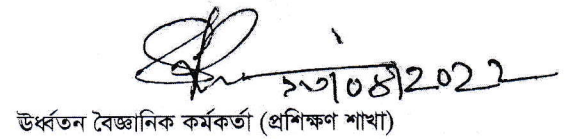 ১৩|০৪|2022
ঊর্ধ্বতন বৈজ্ঞানিক কর্মকর্তা (প্রশিক্ষণ শাখা)